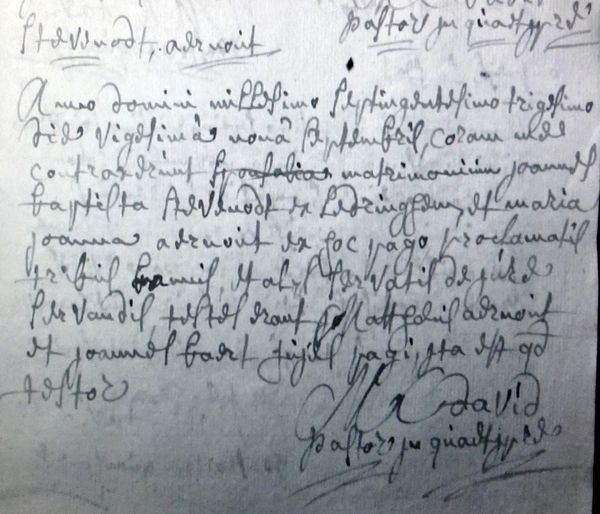 pastor in quadypre
Stevenodt, aernout
Anno domini millesimo septingentesimo trigesimo
die vigesimâ nonâ septembris, coram me
contraxerunt sposalia matrimonium joannes
baptista stevenodt ex Ledringhem, et maria
joanna aernout ex hoc pago proclamatis
tribus bannis, et aliis servatis de jure
servandis, testes erant Mattheus aernout
et joannes baert hujus pagi, ita est qd
testor
david
pastor in quadypre